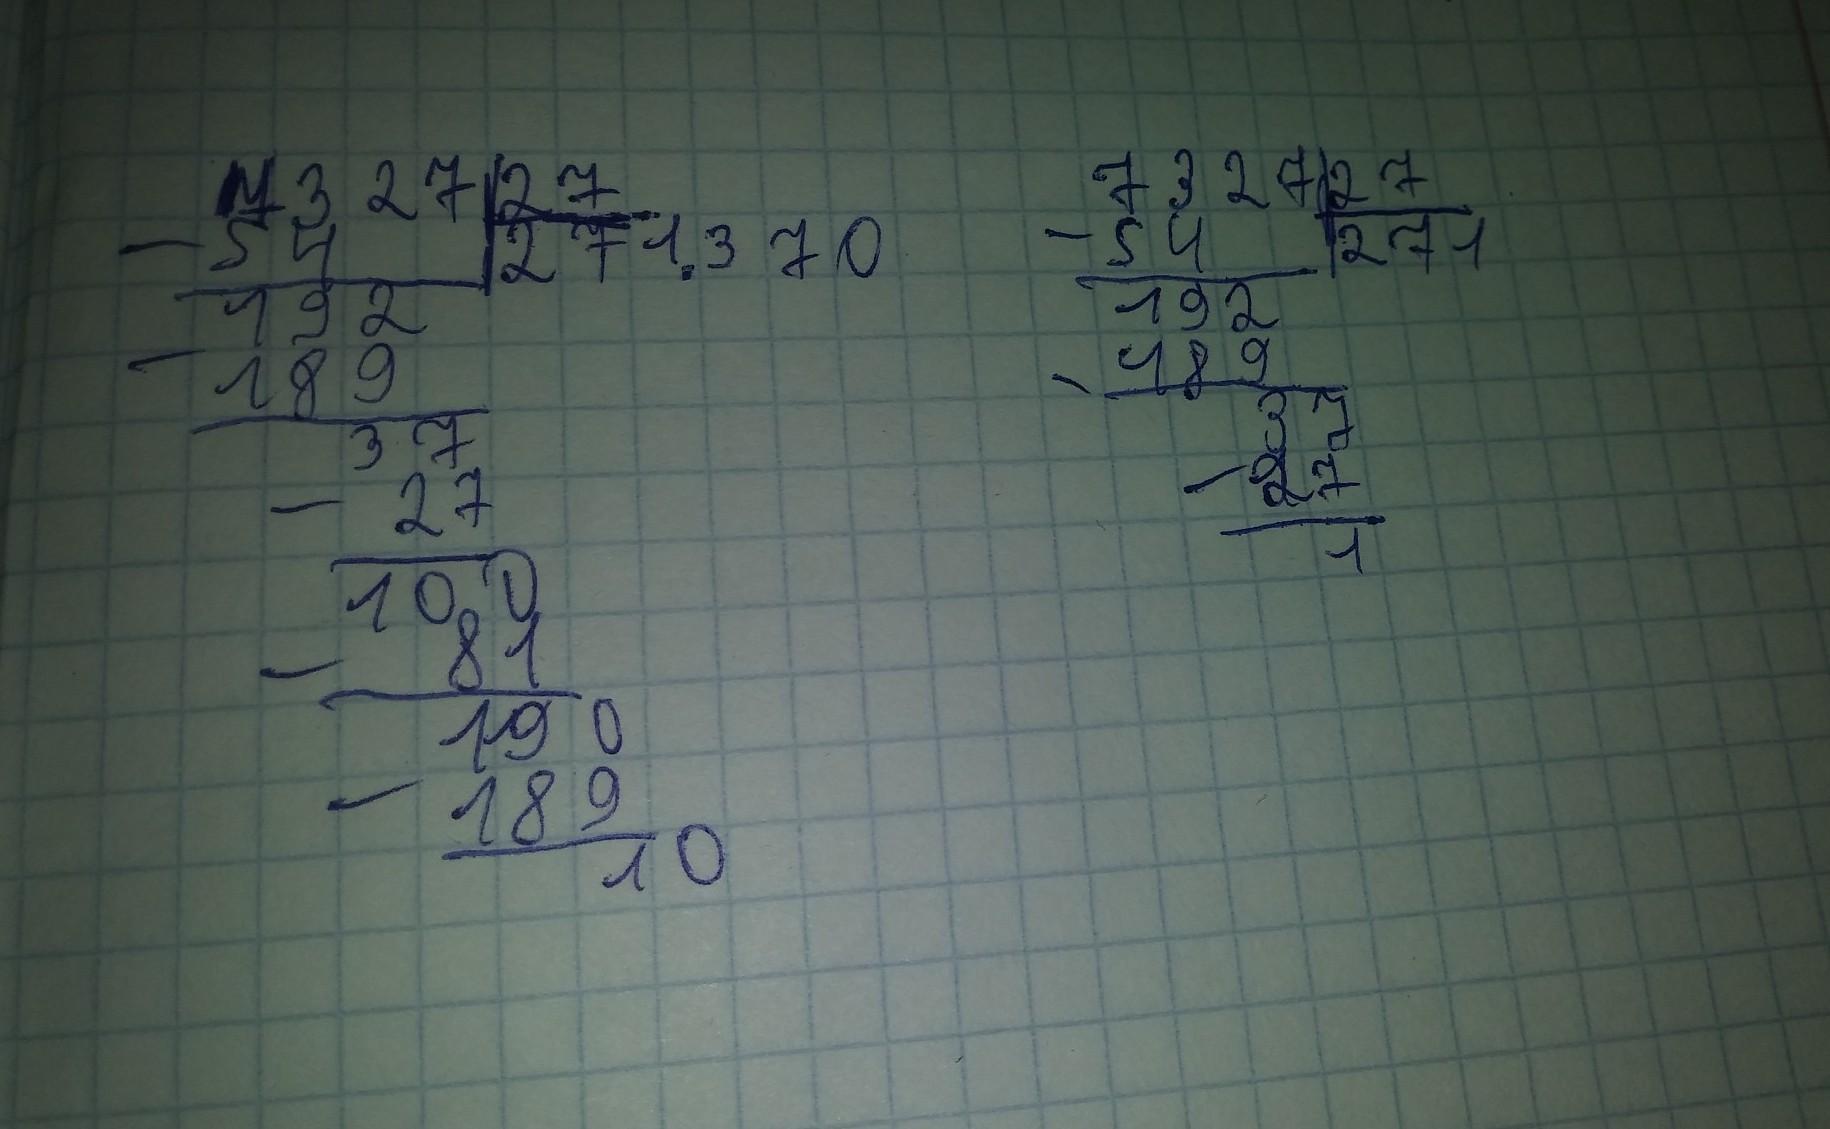 7327 27
- 54 271.370
192
- 189
37
- 27
100
- 81
190
- 189
10
7327 27
- 54 271
192
- 189
37
- 27
1